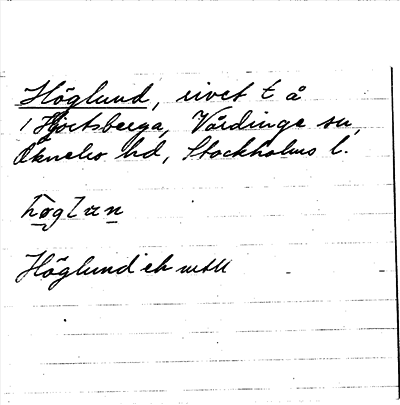 Höglund, rivet t å
1 Hjortsberga, Vårdinge sn,
Öknebo hd, Stockholms l.
höglun
Höglund ek